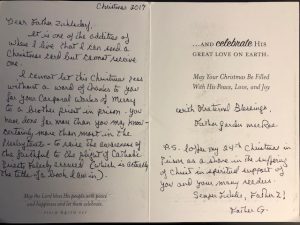 Christmas 2017
Dear Father Zuhlsdorf,
It is one of the oddities of
where I live that I can send a
Christmas card but cannot receive
one.
I cannot let this Christmas pass
without a word of thanks to you
for your Corporal Works of Mercy
to a brother priest in prison - you
have done far more than you may know -
certainly more than most in the
- to raise the awareness of
the faithful to the plight of Catholic
Priests Falsely Accused (which is actually
the title of a book I am in).
May the Lord bless His people with peace
and happiness and let them celebrate.
...AND celebrate HIS
GREAT LOVE ON EARTH.
May Your Christmas Be Filled
With His Peace, Love, and Joy
With Fraternal Blessings,
Father Gordon MacRae
P.S. I offer my 24th Christmas in
Prison as a share in the suffering
of Christ in spiritual support of
you and your many readers.
Semper Fidelis, Father Z!
Father G.